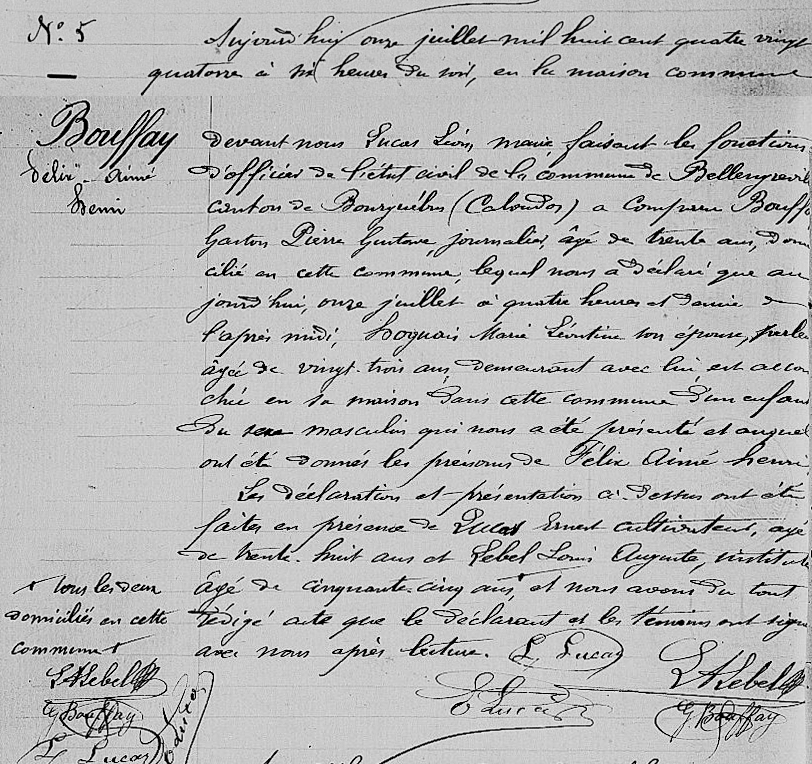 N° 5
Aujourd'hui onze juillet mil huit cent quatre vingt
quatorze à six heures du soir, en la maison commune
Bouffay
Félix Aimé
Henri
devant nous Lucas Léon, maire faisant les fonctions
d'officier de l'état civil de la commune de Bellengrevil
canton de Bourguébus (Calvados) a comparu Bouff
Gaston Pierre Gustave, journalier, âgé de trente ans, domi
cilié en cette commune, lequel nous a déclaré que au
jourd'hui, onze juillet à quatre heures et demie de
l'après midi, Hoguais Marie Léontine son épouse,
âgée de vingt-trois ans, demeurant avec lui est accou
chée en sa maison dans cette commune d'un enfant
du sexe masculin qui nous a été présenté et auquel
ont été donnés les prénoms de Félix Aimé Henri.
Les déclaration et présentation ci-dessus ont été
faites en présence de Lucas Ernest cultivateur, âgé
de trente-huit ans et Lebel Louis Auguste, institut
âgé de cinquante-cinq ans, + et nous avons du tout
rédigé acte que le déclarant et les témoins ont signé
avec nous après lecture.
+ tous les deux
domiciliés en cette
commune +
L. Lucas
LALebel
E Lucas
G. Bouffay
LALebel
G Bouffay
L. Lucas
E Lucas